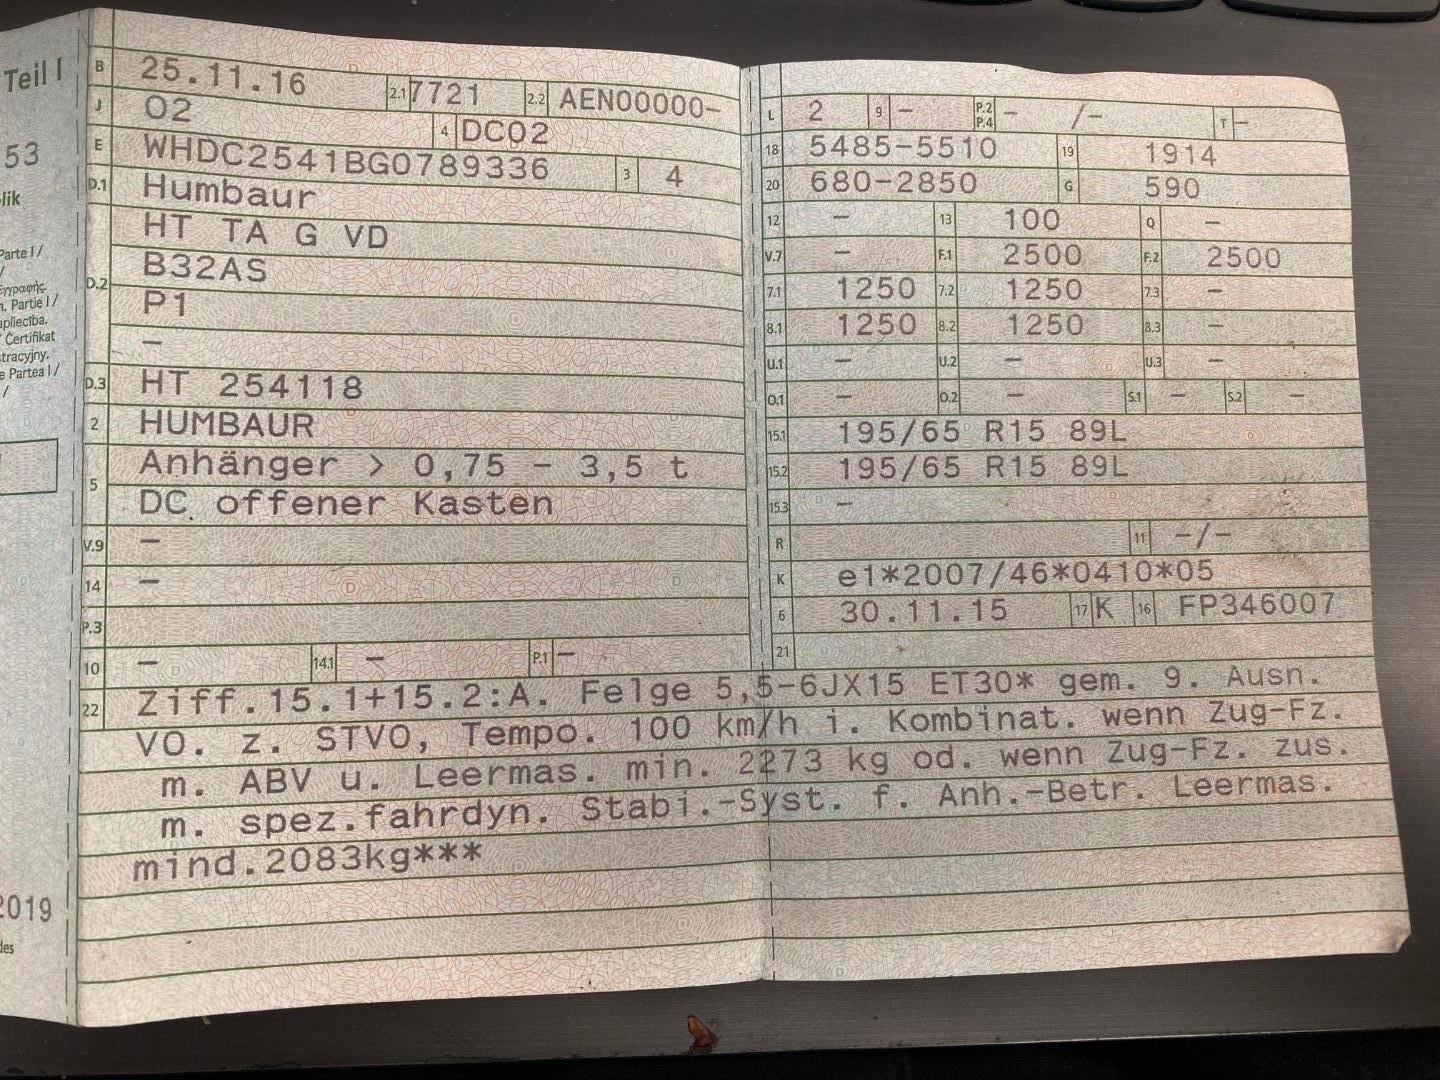 Teil I
53
lik
Parte I /
/
Εγγραφής.
n. Partie I /
apliecība.
Certifikat
tracyjny.
e Partea I /
/
2019
des
B 25.11.16 2.1 7721 2.2 AEN00000-
J O2 4 DC02
E WHDC2541BG0789336 3 4
D.1 Humbaur
D.2 HT TA G VD
B32AS
P1
-
D.3 HT 254118
2 HUMBAUR
5 Anhänger > 0,75 - 3,5 t
DC offener Kasten
V.9 -
14 -
P.3
10 - 14.1 - P.1 -
L 2 9 - P.2 P.4 - /- T -
18 5485-5510 19 1914
20 680-2850 G 590
12 - 13 100 Q -
V.7 - F.1 2500 F.2 2500
7.1 1250 7.2 1250 7.3 -
8.1 1250 8.2 1250 8.3 -
U.1 - U.2 - U.3 -
O.1 - O.2 - S.1 - S.2 -
15.1 195/65 R15 89L
15.2 195/65 R15 89L
15.3 -
R 11 -/-
K e1*2007/46*0410*05
6 30.11.15 17 K 16 FP346007
21
22 Ziff.15.1+15.2:A. Felge 5,5-6JX15 ET30* gem. 9. Ausn.
VO. z. STVO, Tempo. 100 km/h i. Kombinat. wenn Zug-Fz.
m. ABV u. Leermas. min. 2273 kg od. wenn Zug-Fz. zus.
m. spez.fahrdyn. Stabi.-Syst. f. Anh.-Betr. Leermas.
mind.2083kg***